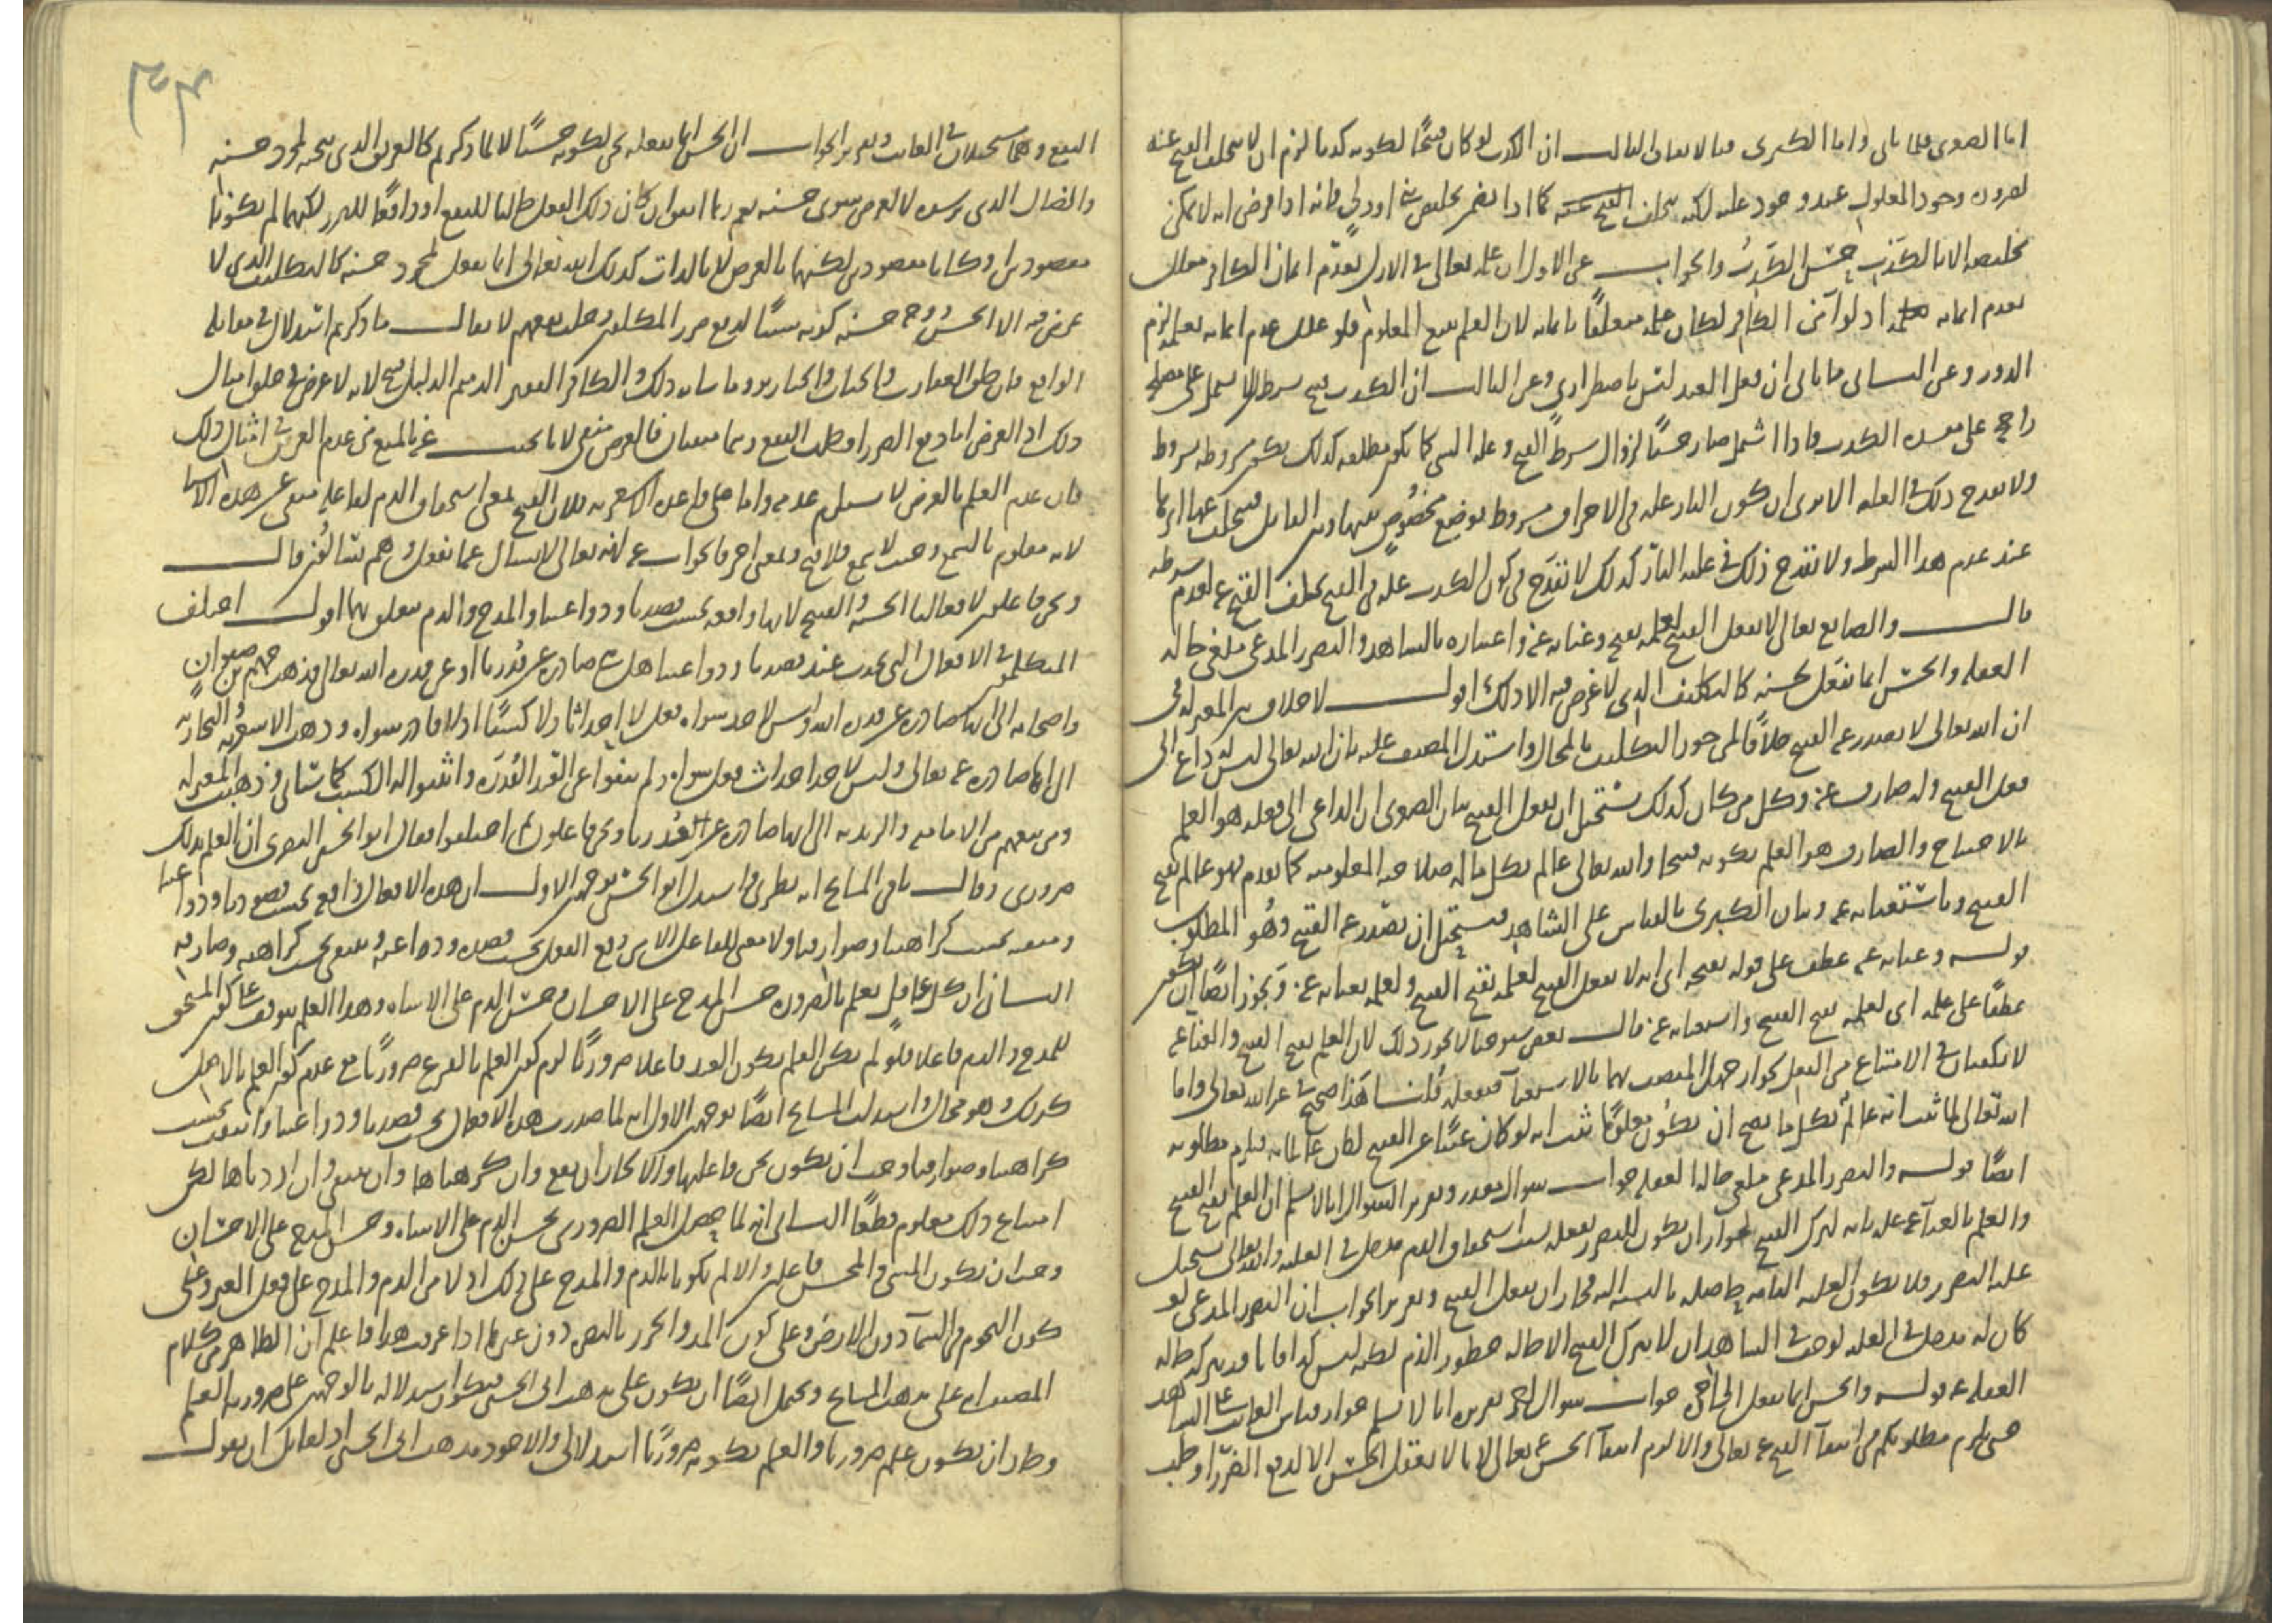 اما الصغرى فلما يأتي واما الكبرى فبالاتفاق الثالث ان الكذب لو كان قبيحا لكونه كذبا لزم ان لا يتخلف القبح عنه
لضرورة وجود المعلول عند وجود علته لكنه يتخلف القبح عنه كما اذا تضمن تخليص نبي او ولي فانه اذا فرض انه لا يمكن
تخليصه الا بالكذب حسن الكذب والجواب عن الاول ان علمه تعالى في الازل بعدم ايمان الكافر معلل
بعدم ايمانه اذ لو آمن الكافر لكان علمه متعلقا بايمانه لان العلم يتبع المعلوم فلو علل عدم ايمانه بعلمه لزم
الدور وعن الثاني ما يأتي ان فعل العبد ليس باضطراري وعن الثالث ان الكذب قبيح بشرط الا يشتمل على مصلحة
راجحة على مفسدة الكذب فاذا اشتمل صار حسنا لزوال شرط القبح وعلة الشي كما تكون مطلقة كذلك تكون مشروطة بشروط
ولا يقدح ذلك في العلة الا ترى ان كون النار علة في الاحراق مشروط بوضع مخصوص بينها وبين القابل فيتخلف عنها اثرها
عند عدم هذا الشرط ولا يقدح ذلك في علية النار كذلك لا يقدح في كون الكذب علة في القبح تخلف القبح عنه لعدم شرطه
قال والصانع تعالى لا يفعل القبيح لعلمه بقبحه وغناه عنه واعتباره بالشاهد والتضرر المدعى ملغى حالة
الغفلة والحسن انما يفعل لحسنه كالتكليف الذي لا غرض فيه الا ذلك اقول لا خلاف بين المعتزلة في
ان الله تعالى لا يصدر عنه القبيح خلافا لمن جوز التكليف بالمحال واستدل المصنف عليه بان الله تعالى ليس له داع الى
فعل القبيح وله صارف عنه وكل من كان كذلك يستحيل ان يفعل القبيح بيان الصغرى ان الداعي الى فعله هو العلم
بالاحتياج والصارف هو العلم بكونه قبيحا والله تعالى عالم بكل ما له صلاحية المعلومية كما تقدم فهو عالم بقبح
القبيح وباستغنائه عنه وبيان الكبرى بالقياس على الشاهد فيستحيل ان يصدر عنه القبيح وهو المطلوب
قوله وغناه عنه عطف على قوله بقبحه اي انه لا يفعل القبيح لعلمه بقبح القبيح ولعلمه بغناه عنه ويجوز ايضا ان يكون
عطفا على علمه اي لعلمه بقبح القبيح واستغنائه عنه قال بعض شيوخنا لا يجوز ذلك لان العلم بقبح القبيح والغنا عنه
لا يكفيان في الامتناع من الفعل لجواز جهل المتصف بهما بالاستغناء فيفعله قلنا هذا صحيح في غير الله تعالى واما
الله تعالى لما ثبت انه عالم بكل ما يصح ان يكون معلوما ثبت انه لو كان غنيا عن القبيح لكان عالما به فيلزم مطلوبه
ايضا قوله والتضرر المدعى ملغى حالة الغفلة جواب سوال مقدر وتقرير السوال انا لا نسلم ان العلم بقبح القبيح
والعلم بالغناء عنه علة تامة لترك القبيح لجواز ان يكون للتضرر بفعله بسبب استحقاق الذم مدخل في العلة والله تعالى يستحيل
عليه التضرر فلا تكون العلة التامة حاصلة بالنسبة اليه فجاز ان يفعل القبيح وتقرير الجواب ان التضرر المدعى لو
كان له مدخل في العلة لوجب في الشاهد ان لا يترك القبيح الا حالة خطور الذم لكنه ليس كذا فانا قد نتركه حالة
الغفلة عنه قوله والحسن انما يفعل الى اخره جواب سوال اخر تقريره انا لا نسلم جواز قياس الغائب على الشاهد
حتى يلزم مطلوبكم من انتفاء القبيح عنه تعالى والا لزم انتفاء الحسن عنه تعالى لانا لا نفعل الحسن الا لدفع الضرر او جلب
النفع وهما مستحيلان في الغائب وتقرير الجواب ان الحسن انما نفعله نحن لكونه حسنا لا لما ذكرتم كالغريق الذي ننجيه لمجرد حسنه
والضال الذي نرشده لا لغرض سوى حسنه نعم ربما اتفق ان كان ذلك الفعل جالبا للنفع او دافعا للضرر لكنهما لم يكونا
مقصودين او كانا مقصودين لكنهما بالعرض لا بالذات كذلك الله تعالى انما يفعل لمجرد حسنه كالتكليف الذي لا
غرض فيه الا الحسن وجه حسنه كونه سببا لدفع ضرر المكلفين وجلب نفعهم لا يقال ما ذكرتم استدلال في مقابلة
الواقع فان خلق العقارب والحيات والخنازير وما شابه ذلك والكافر الفقير الدميم الذليل قبيح لانه لا غرض في خلق امثال
ذلك اذ الغرض اما دفع الضرر او جلب النفع وهما منتفيان فالغرض منتف لانا نجيب عنه بالمنع من عدم الغرض في امثال ذلك
فان عدم العلم بالغرض لا يستلزم عدمه واما على قاعدة الاشعرية فلان القبيح بمعنى استحقاق الذم لفاعله منتف عن هذه الاشيا
لانه معلوم بالسمع وحيث لا سمع فلا قبح وبمعنى اخر فالجواب عنه لانه تعالى لا يسال عما يفعل وهم يسالون قال
ونحن فاعلون لافعالنا الحسنة والقبيحة لانها واقعة بحسب قصدنا ودواعينا والمدح والذم متعلق بهما اقول اختلف
المتكلمون في الافعال التي تحدث عند قصدنا ودواعينا هل هي صادرة عن قدرنا او عن قدرة الله تعالى فذهب جهم بن صفوان
واصحابه الى انها صادرة عن قدرة الله وليس لاحد سواه فعل لا احداثا ولا كسبا اذ لا قادر سواه وذهب الاشعرية والنجارية
الى انها صادرة عنه تعالى وليس لاحد احداث فعل سواه ولم ينفوا عن العبد القدرة واثبتوا له الكسب كما سياتي وذهبت المعتزلة
ومن تبعهم من الامامية والزيدية الى انها صادرة عن قدرنا ونحن فاعلون ثم اختلفوا فقال ابو الحسين البصري ان العلم بذلك
ضروري وقال باقي المشايخ انه نظري واستدل ابو الحسين بوجهين الاول ان هذه الافعال واقعة بحسب قصودنا ودواعينا
ومنتفية بحسب كراهتنا وصوارفنا ولا معنى للفاعل الا من وقع الفعل بحسب قصده ودواعيه وينتفي بحسب كراهته وصارفه
الثاني ان كل عاقل يعلم بالضرورة حسن المدح على الاحسان وحسن الذم على الاساءة وهذا العلم يتوقف على كون المستحق
للمدح والذم فاعلا فلو لم يكن العلم بكون العبد فاعلا ضروريا لزم كون العلم بالفرع ضروريا مع عدم كون العلم بالاصل
كذلك وهو محال واستدلت المشايخ ايضا بوجهين الاول انه لما صدرت هذه الافعال بحسب قصدنا ودواعينا وانتفت بحسب
كراهتنا وصوارفنا وجب ان نكون نحن فاعليها والا لجاز ان تقع وان كرهناها وان تنتفي وان اردناها لكن
امتناع ذلك معلوم قطعا الثاني انه لما حصل العلم الضروري بحسن الذم على الاساءة وحسن المدح على الاحسان
وجب ان يكون المسيء والمحسن فاعلين والا لم يكونا بالذم والمدح على ذلك اولى من الذم والمدح على فعل الغير وعلى
كون النجوم في السماء دون الارض وعلى كون المد والجزر بالبصرة دون غيرها اذا عرفت هذا فاعلم ان الظاهر من كلام
المصنف انه على مذهب المشايخ ويحتمل ايضا ان يكون على مذهب ابي الحسين فيكون استدلاله بالوجهين على ضرورية العلم
وجاز ان يكون علم ضروريا والعلم بكونه ضروريا استدلاليا والاجود مذهب ابي الحسين اذ لقائل ان يقول